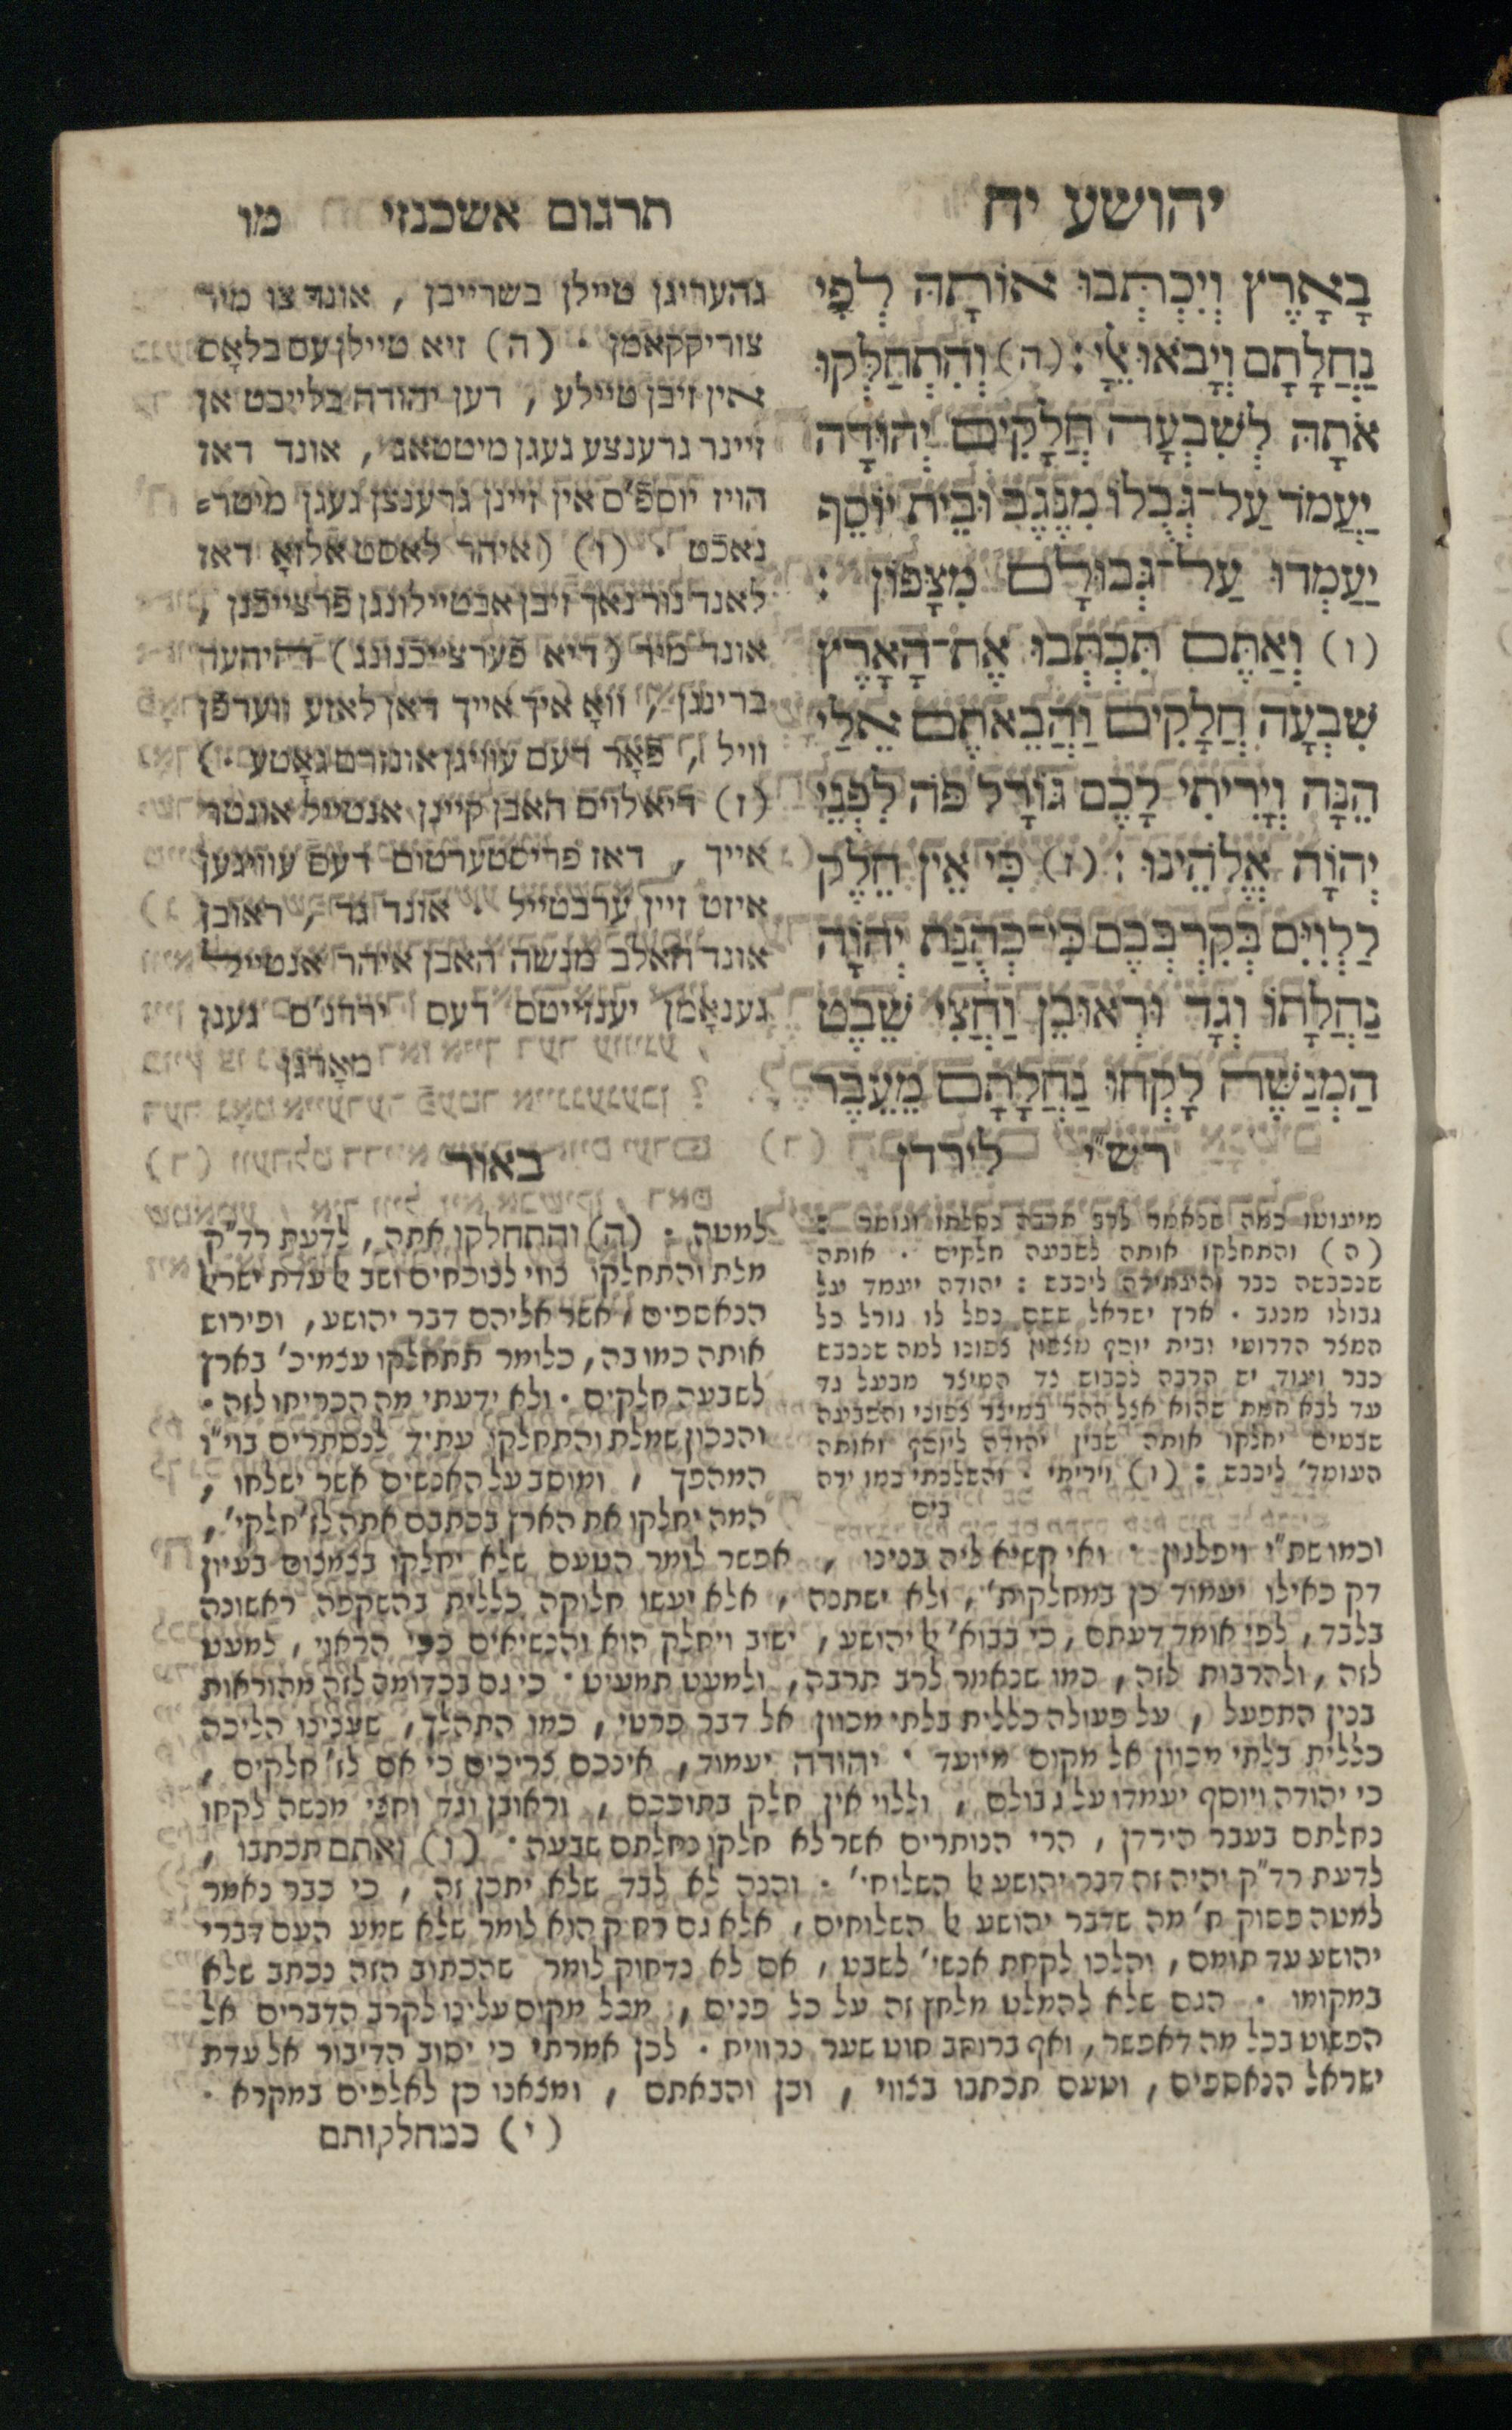 יהושע יח
תרגום אשכנזי מו
בָאָרֶץ וְיִכְתְּבוּ אוֹתָהּ לְפִי
נַחֲלָתָם וְיָבֹאוּ אֵלָי : (ה) וְהִתְחַלְּקוּ
אֹתָהּ לְשִׁבְעָה חֲלָקִים יְהוּדָה
יַעֲמֹד עַל־גְּבֻלוֹ מִנֶּגֶב וּבֵית יוֹסֵף
יַעַמְדוּ עַל־גְּבוּלָם מִצָּפוֹן :
(ו) וְאַתֶּם תִּכְתְּבוּ אֶת־הָאָרֶץ
שִׁבְעָה חֲלָקִים וַהֲבֵאתֶם אֵלַי
הֵנָּה וְיָרִיתִי לָכֶם גּוֹרָל פֹּה לִפְנֵי
יְהֹוָה אֱלֹהֵינוּ : (ז) כִּי אֵין חֵלֶק
לַלְוִיִּם בְּקִרְבְּכֶם כִּי־כְהֻנַּת יְהֹוָה
נַחֲלָתוֹ וְגָד וּרְאוּבֵן וַחֲצִי שֵׁבֶט
הַמְנַשֶּׁה לָקְחוּ נַחֲלָתָם מֵעֵבֶר
לירדן
געהעריגן טיילן בשרייבן , אונד צו מיר
צוריקקאמן . (ה) זיא טיילן עס בלאָס
אין זיבן טיילע , דען יהודה בלייבט אן
זיינר גרענצע געגן מיטטאג , אונד דאז
הויז יוסף'ס אין זיינן גרענצן געגן מיטר=
נאכט . (ו) (איהר לאסט אלזאָ דאז
לאנד נור נאך זיבן אבטיילונגן פרצייכנן ,
אונד מיר (דיא פערצייכנונג) היהער
ברינגן , וואָ איך אייך דאן לאזע ווערפן
וויל , פאָר דעם עוויגן אונזרם גאָטע .)
(ז) דיא לוים האבן קיינן אנטייל אונטר
אייך , דאז פריסטערטום דעס עוויגען
איזט זיין ערבטייל . אונד גד , ראובן
אונד האלב מנשה האבן איהר אנטייל
גענאָמן יענזייטס דעס ירדנ'ס געגן
מאָרגן
רש"י
מיעוטו כמה שנאמר לרב תרבה נחלתו וגומר :
(ה) והתחלקו אותה לשבעה חלקים . אותה
שנכבשה כבר והעתידה ליכבש : יהודה יעמד על
גבולו מנגב . ארץ ישראל ששם נפל לו גורל כל
המצר הדרומי ובית יוסף מצפון צפונו למה שנכבש
כבר ועוד יש הרבה לכבוש נד המיצר מבעל גד
עד לבא חמת שהוא אצל ההר במיצר צפוני והשבעה
שבטים יחלקו אותה שבין יהודה ליוסף ואותה
העומד' ליכבש : (ו) ויריתי . והשלכתי כמו ירה
בים
באור
למטה . (ה) והתחלקו אתה , לדעת רד"ק
מלת והתחלקו צווי לנוכחים ושב אל עדת ישראל
הנאספים , אשר אליהם דבר יהושע , ופירוש
אותה כמו בה , כלומר תתחלקו עצמיכ' בארץ
לשבעה חלקים . ולא ידעתי מה הכריחו לזה .
והנכון שמלת והתחלקו עתיד לנסתרים בוי"ו
המהפך , ומוסב על האנשים אשר ישלחו ,
המה יחלקו את הארץ בכתבם אתה לז' חלקי' ,
וכמו שת"י ויפלגון . ואי קשיא ליה בנינו , אפשר לומר הטעם שלא יחלקו בצמצום בעיון
דק כאילו יעמוד כן במחלקות' , ולא ישתנה , אלא יעשו חלוקה כללית בהשקפה ראשונה
בלבד , לפי אומד דעתם , כי בבוא' אל יהושע , ישוב ויחלק הוא והנשיאים כפי הראוי , למעט
לזה , ולהרבות לזה , כמו שנאמר לרב תרבה , ולמעט תמעיט . כי גם בכדומה לזה מהוראות
בנין התפעל , על פעולה כללית בלתי מכוון אל דבר פרטי , כמו התהלך , שענינו הליכה
כללית בלתי מכוון אל מקום מיועד . יהודה יעמוד , אינכם צריכים כי אם לז' חלקים ,
כי יהודה ויוסף יעמדו על גבולם , וללוי אין חלק בתוככם , וראובן וגד וחצי מנשה לקחו
נחלתם בעבר הירדן , הרי הנותרים אשר לא חלקו נחלתם שבעה . (ו) ואתם תכתבו ,
לדעת רד"ק יהיה זה דבר יהושע אל השלוחי' . והנה לא לבד שלא יתכן זה , כי כבר נאמר
למטה פסוק ח' מה שדבר יהושע אל השלוחים , אלא גם רחיק הוא לומר שלא שמע העם דברי
יהושע עד תומם , והלכו לקחת אנשי' לשבט , אם לא נדחוק לומר שהכתוב הזה נכתב שלא
במקומו . הגם שלא להמלט מלחץ זה על כל פנים , מכל מקום עלינו לקרב הדברים אל
הפשוט בכל מה דאפשר , ואף ברוחב חוט שער כרוויח . לכן אמרתי כי יסוב הדיבור אל עדת
ישראל הנאספים , וטעם תכתבו בצווי , וכן והבאתם , ומצאנו כן לאלפים במקרא .
(י) כמחלקותם